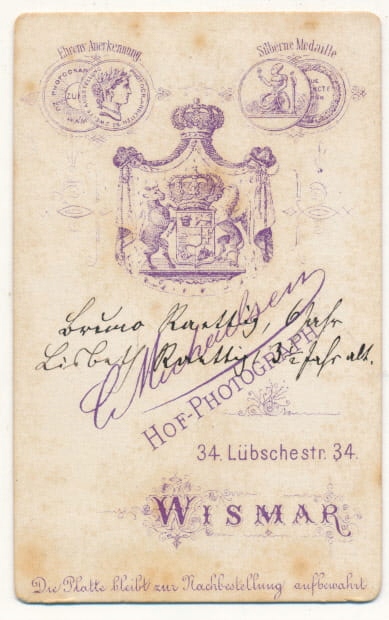 Ehren Anerkennung
Silberne Medaille
Bruno Raettig, 6 Jahr
Lisbeth Raettig 3½ Jahr alt.
C. Michaelsen
HOF-PHOTOGRAPH
34. Lübschestr. 34.
WISMAR
Die Platte bleibt zur Nachbestellung aufbewahrt.